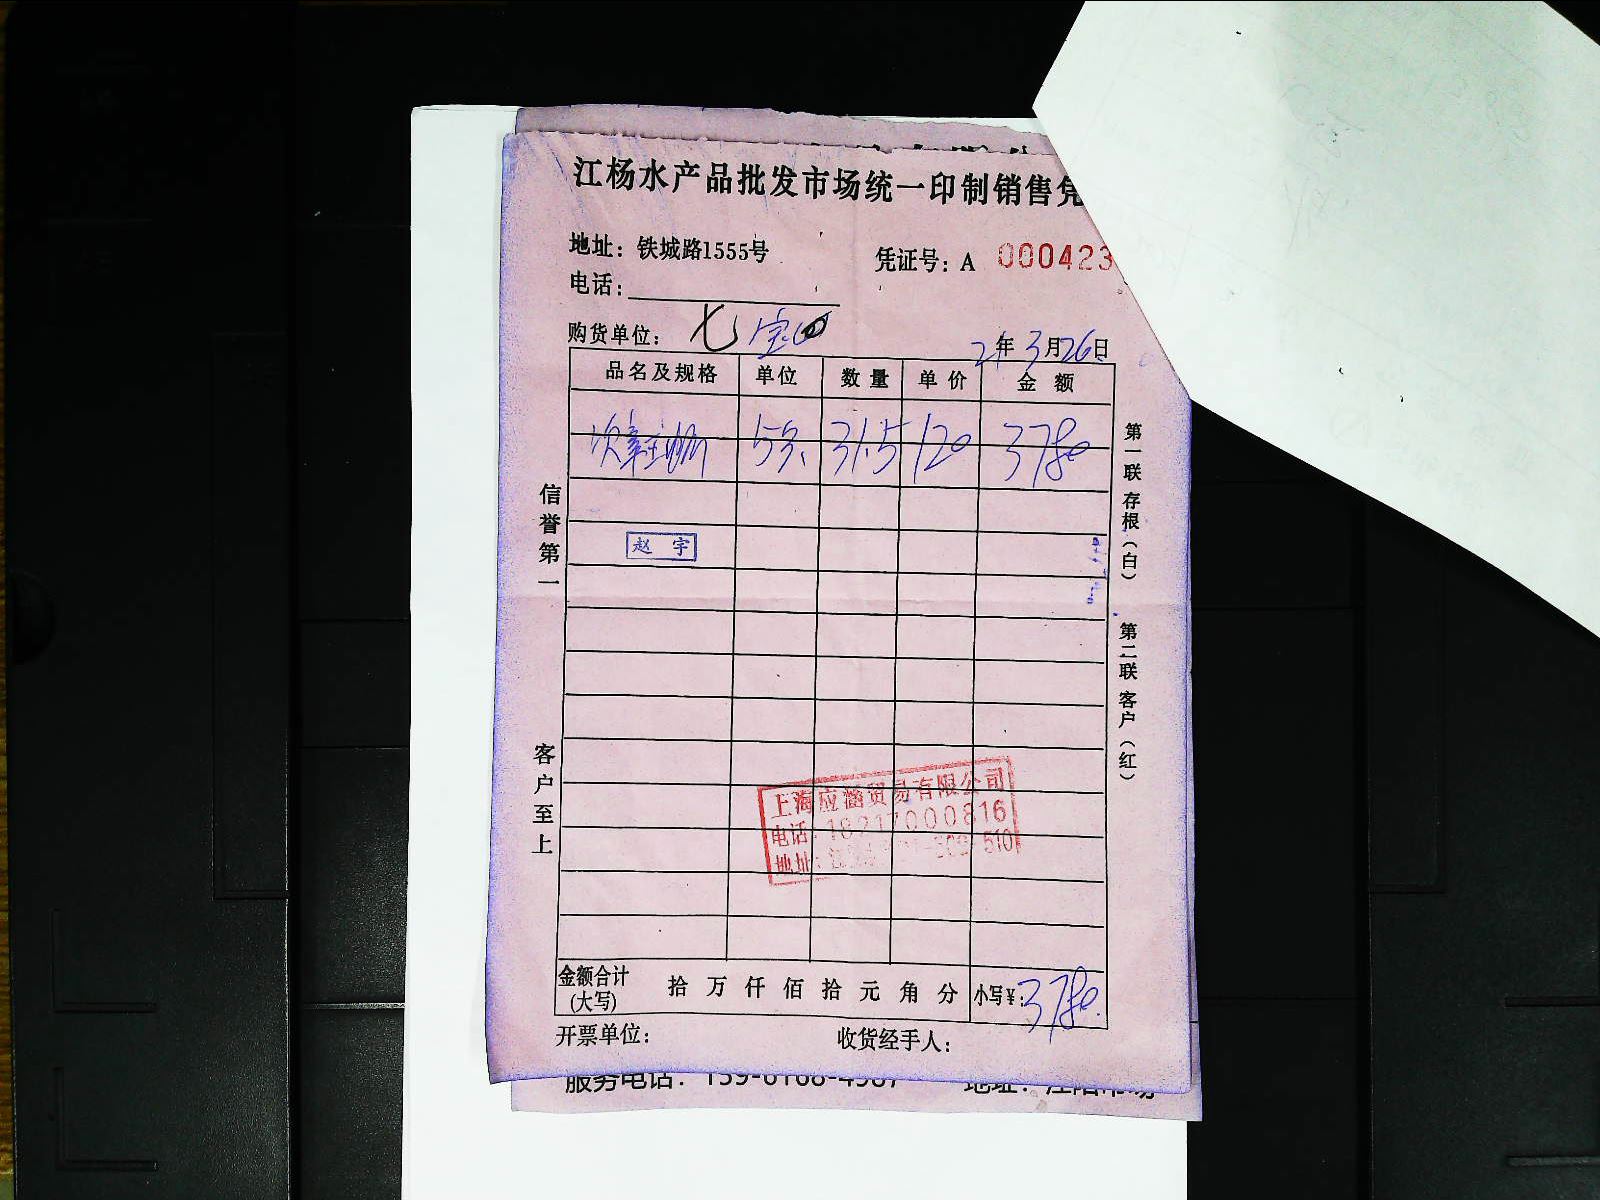 江杨水产品批发市场统一印制销售凭
地址：铁城路1555号
凭证号：A 000423
电话：
购货单位： 七宝
21年3月26日
品名及规格 单位 数量 单价 金额
31.5 120 3780
赵宇
信誉第一
客户至上
第一联 存根（白）
第二联 客户（红）
上海应涵贸易有限公司
电话：18217000816
地址：
510
金额合计（大写） 拾 万 仟 佰 拾 元 角 分 小写¥：3780.
开票单位： 收货经手人：
服务电话：
地址：江阳市场